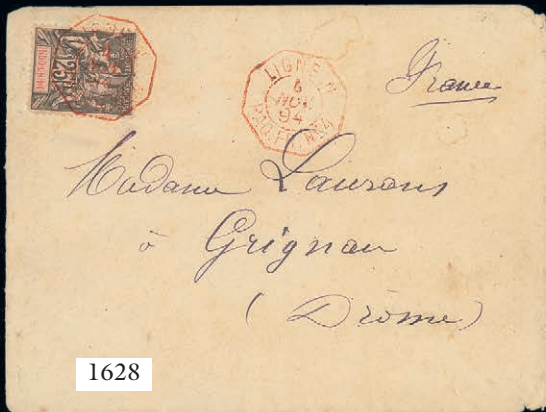 LIGNE N
6
NOV.
94
PAQ. FR. Nº4
France
Madame Laurans
à Grignan
(Drôme)
1628